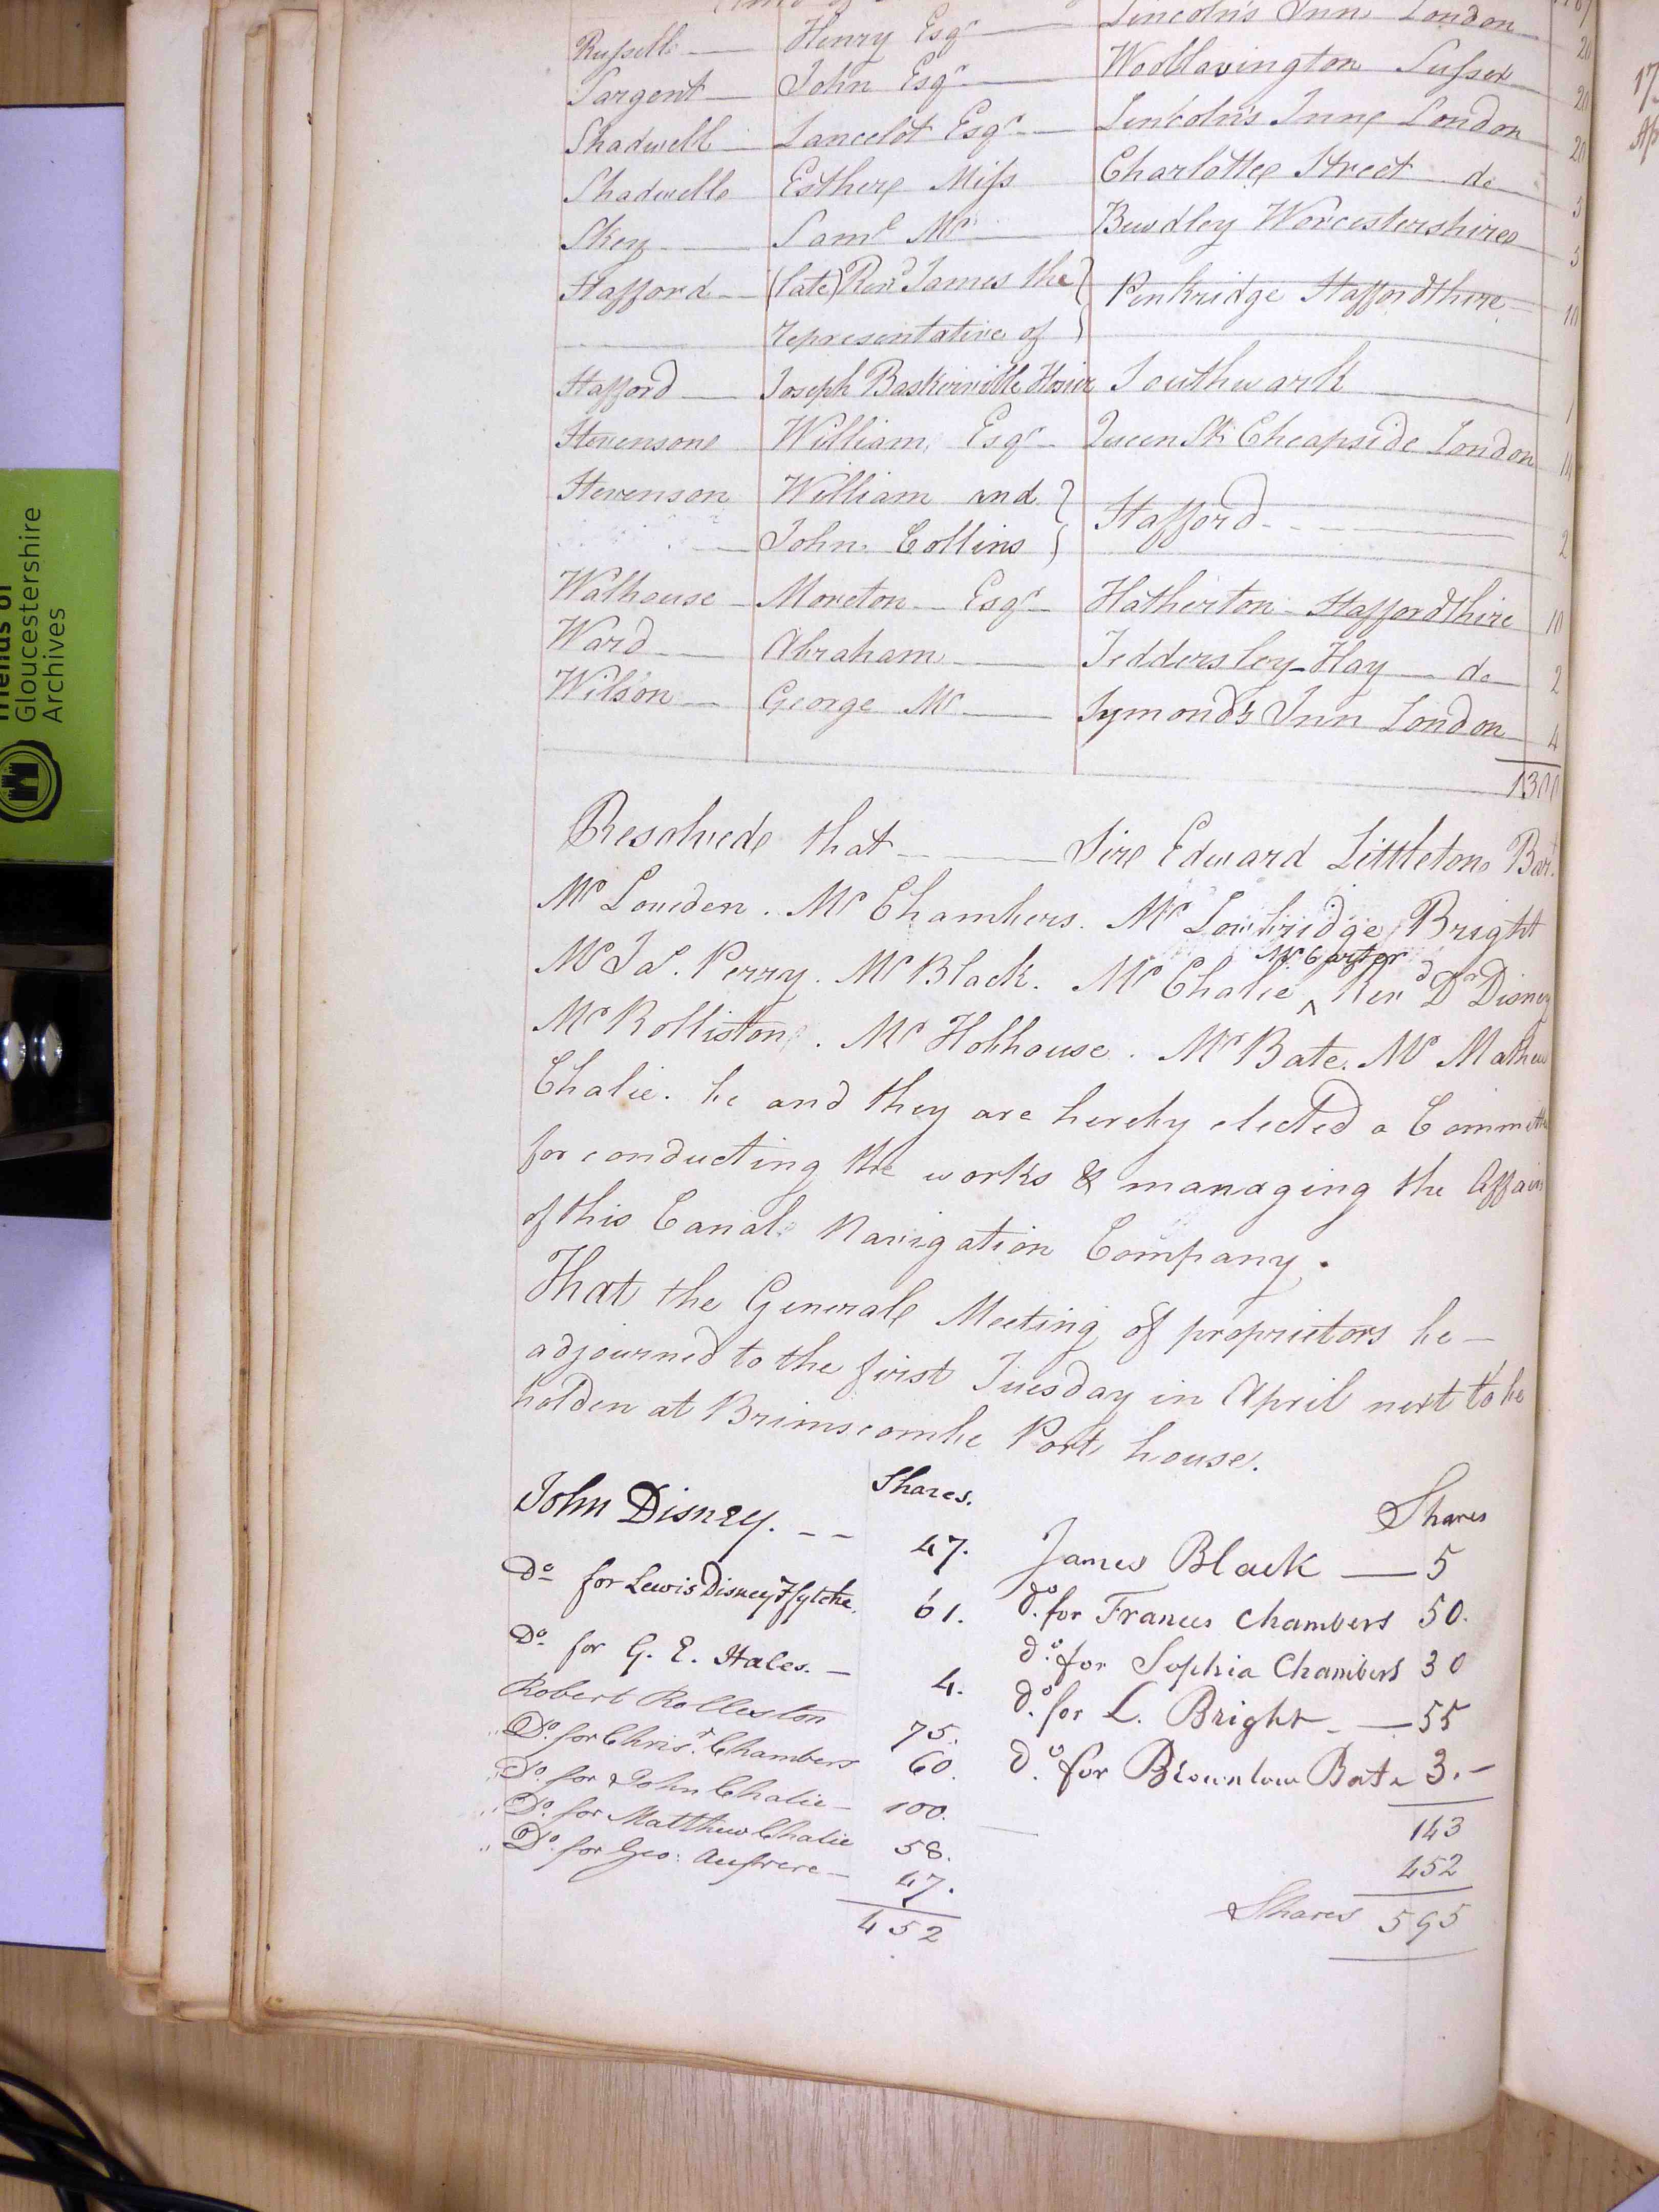 Russell Henry Esqr Lincoln's Inn London 20
Sargent John Esqr Woollavington Sussex 20
Shadwell Lancelot Esqr Lincoln's Inn London 20
Shadwell Esther Miss Charlotte Street do 5
Skey Saml Mr Bewdley Worcestershire 5
Stafford (late) Revd James the Penkridge Staffordshire 10
representative of
Stafford Joseph Baskerville Hosier Southwark 1
Stevenson William Esqr Queen St Cheapside London 14
Stevenson William and Stafford 2
John Collins
Walhouse Moreton Esqr Hatherton Staffordshire 10
Ward Abraham Teddersley Hay do 2
Wilson George Mr Symond's Inn London 4
1300
Resolved that Sir Edward Littleton Bart.
Mr Lowden. Mr Chambers. Mr Lowbridge Bright
Mr Jas. Perry. Mr Black. Mr Chalie ^ Mr Carter Revd Dr Disney
Mr Rolliston. Mr Hobhouse. Mr Bate. Mr Mathew
Chalie. be and they are hereby elected a Committee
for conducting the works & managing the Affairs
of this Canal Navigation Company.
That the General Meeting of proprietors be —
adjourned to the first Tuesday in April next to be
holden at Brimscombe Port house.
Shares. Shares
John Disney. -- 47. James Black — 5
Do for Lewis Disney Ffytche. 61. do. for Frances Chambers 50.
Do for G. E. Hales. — 4. do. for Sophia Chambers 30
Robert Rolleston 75. do. for L. Bright — 55
" Do. for Chrisr. Chambers 60. do. for Brownlow Bate 3. —
" Do. for John Chalie — 100. 143
" Do. for Matthew Chalie 58. 452
" Do. for Geo: Aufrere — 47. Shares 595
452
Friends of
Gloucestershire
Archives
17
Ap